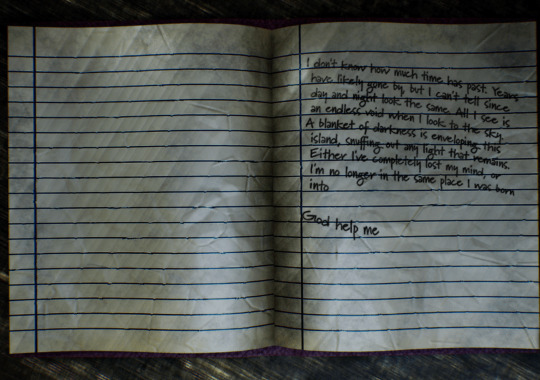 I don't know how much time has past. Years
have likely gone by, but I can't tell since
day and night look the same. All I see is
an endless void when I look to the sky.
A blanket of darkness is enveloping this
island, snuffing out any light that remains.
Either I've completely lost my mind, or
I'm no longer in the same place I was born
into
God help me